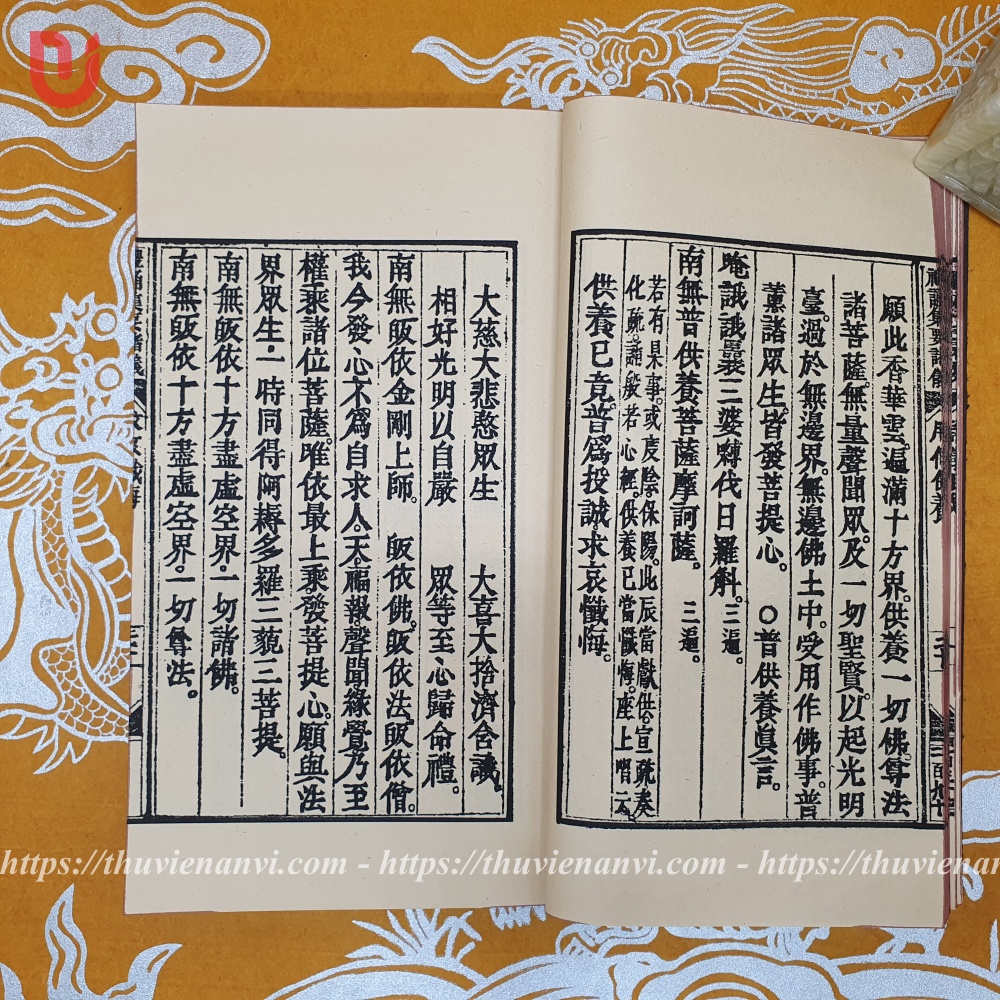 願此香華雲。遍滿十方界。供養一切佛。尊法
諸菩薩。無量聲聞眾。及一切聖賢。以起光明
臺。過於無邊界。無邊佛土中。受用作佛事。普
薰諸眾生。皆發菩提心。 ○普供養眞言。
唵誐誐曩三婆嚩伐日羅斛。三遍。
南無普供養菩薩摩訶薩。 三遍。
若有杲事。或度陰保陽。此辰當獻供。宣疏奏
化疏。諷般若心經。供養已當懺悔。座上唱云。
供養已竟。普爲投誠。求哀懺悔。
大慈大悲愍眾生 大喜大捨濟含識。
相好光明以自嚴 眾等至心歸命禮。
南無皈依金剛上師。 皈依佛。皈依法。皈依僧。
我今發心。不爲自求。人天福報。聲聞緣覺。乃至
權乘諸位菩薩。唯依最上乘發菩提心。願與法
界眾生。一時同得阿耨多羅三藐三菩提。
南無皈依十方盡虛空界。一切諸佛。
南無皈依十方盡虛空界。一切尊法。
https://thuvienanvi.com - https://thuvienanvi.com - https://thuvienanvi